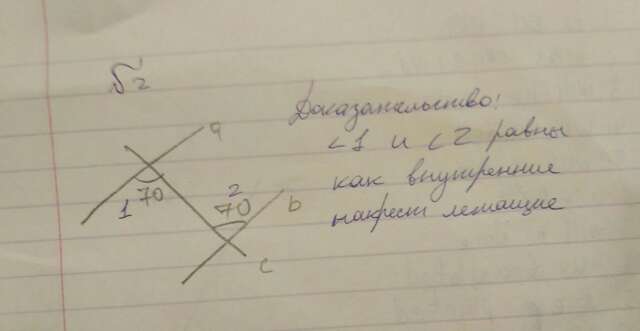 a
1 70
2
70
b
c
Доказательство:
<1 и <2 равны
как внутренние
накрест лежащие